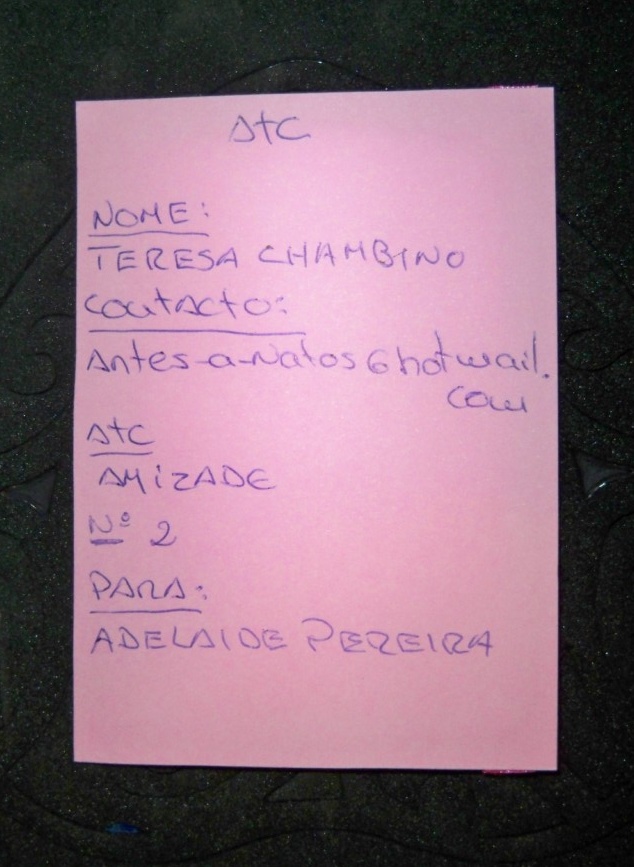 ATC
NOME:
TERESA CHAMBINO
CONTACTO:
Antes-a-Natos@hotmail.
com
ATC
AMIZADE
Nº 2
PARA:
ADELAIDE PEREIRA